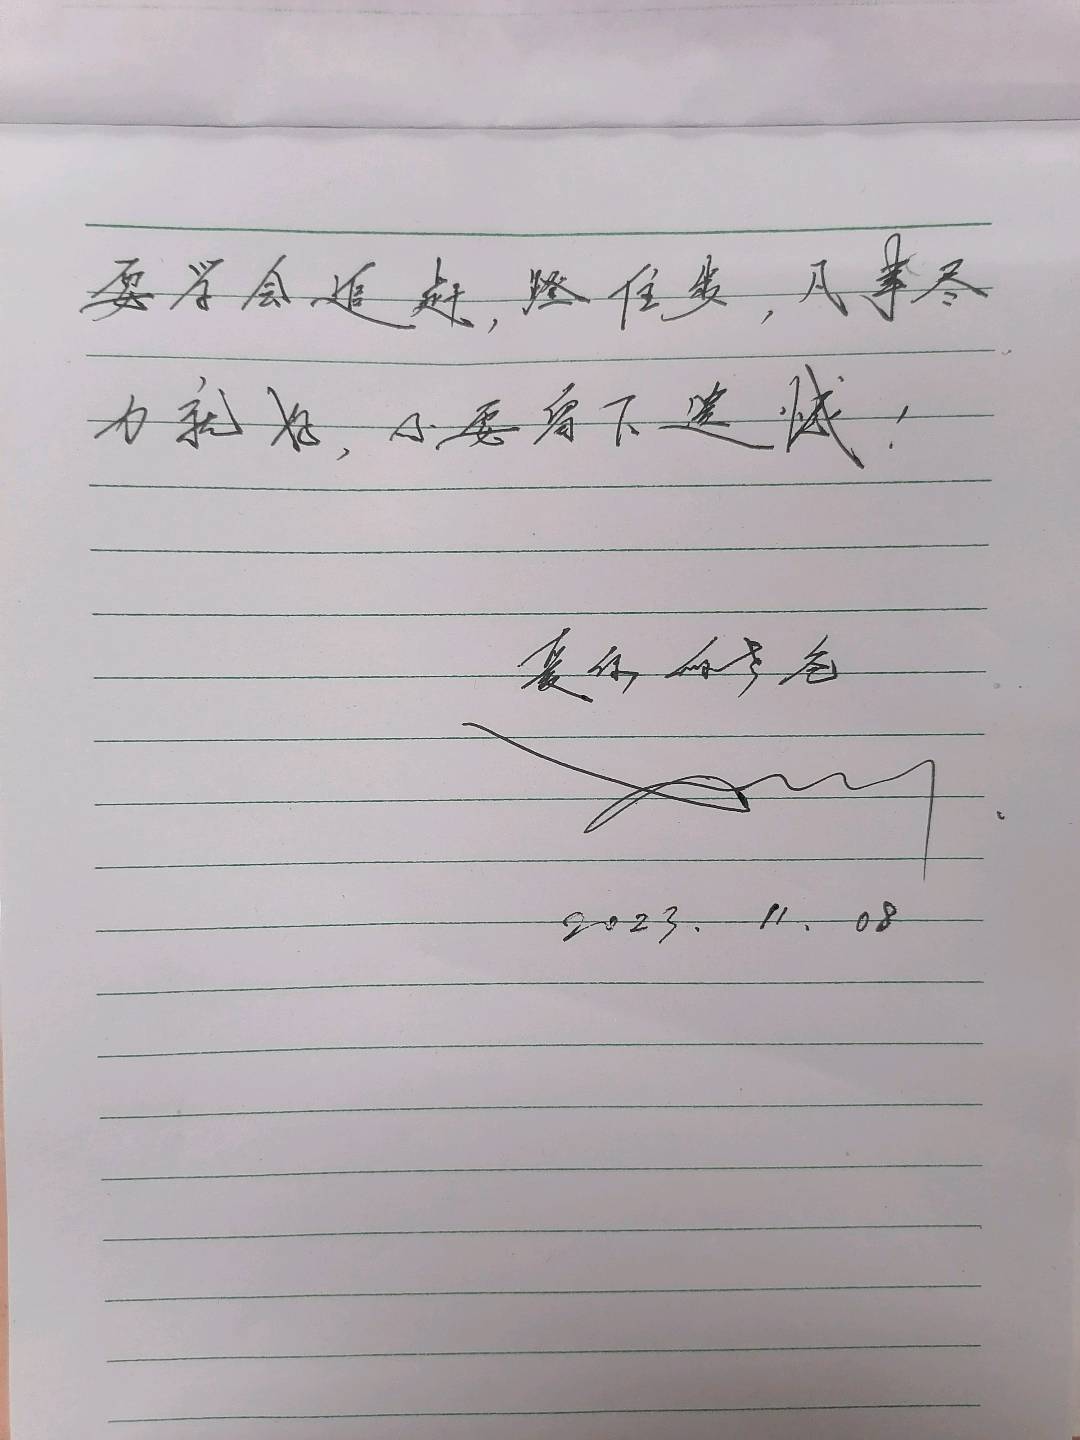 要学会追赶，蹬住发，凡事尽
力就好，不要留下遗憾！
爱你的老爸
2023.11.08